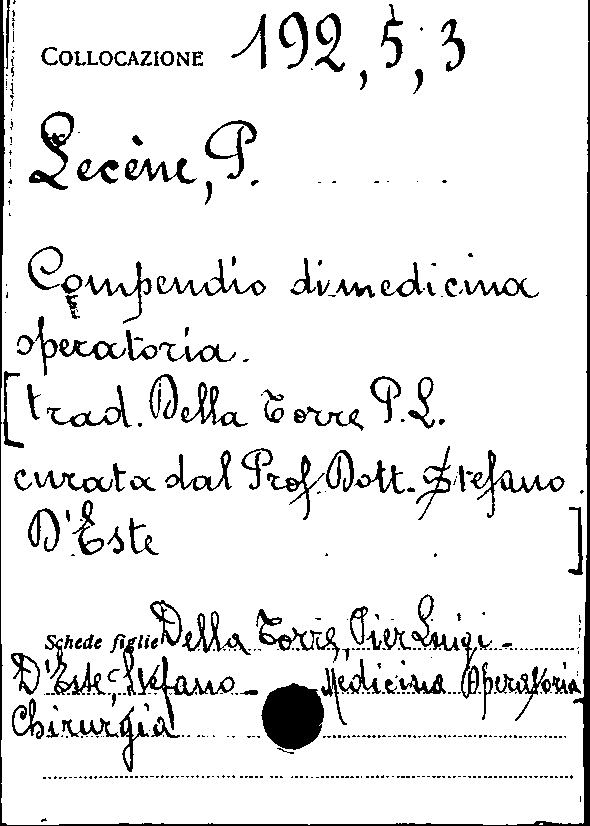 COLLOCAZIONE 192, 5, 3
Lecène, P.
Compendio di medicina
operatoria.
[trad. Della Torre P.L.
curata dal Prof. Dott. Stefano
D'Este]
Schede figlie Della Torre, Pier Luigi -
D'Este, Stefano - Medicina Operatoria
Chirurgia